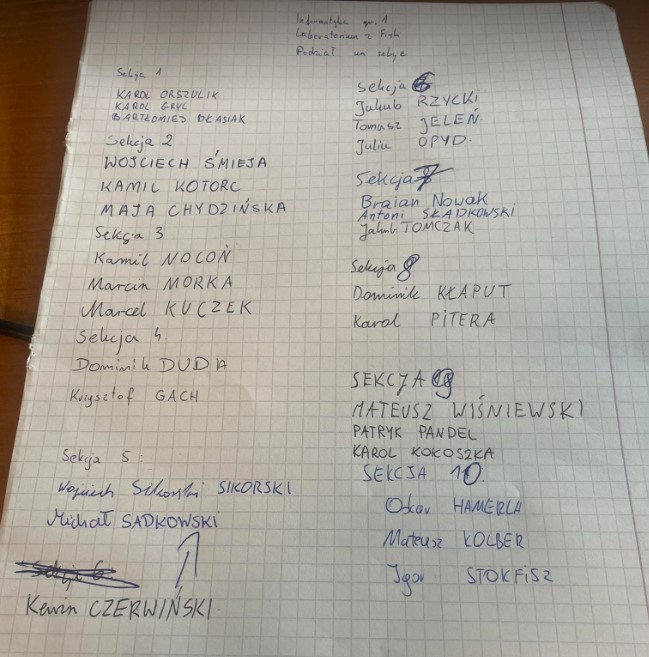 Informatyka gr. 1
Laboratorium z Fizyki
Podział na sekcje
Sekcja 1
KAROL ORSZULIK
KAROL GRYC
BARTŁOMIEJ BŁASIAK
Sekcja 2
WOJCIECH ŚMIEJA
KAMIL KOTORC
MAJA CHYDZIŃSKA
Sekcja 3
Kamil NOCOŃ
Marcin MORKA
Marcel KUCZEK
Sekcja 4.
Dominik DUDA
Krzysztof GACH
Sekcja 5:
Wojciech Sikorski SIKORSKI
Michał SADKOWSKI
Sekcja 6.
Kewin CZERWIŃSKI
Sekcja 6
Jakub RZYCKI
Tomasz JELEŃ
Julia OPYD.
Sekcja 7
Braian Nowak
Antoni SŁADKOWSKI
Jakub TOMCZAK
Sekcja 8
Dominik KŁAPUT
Karol PITERA
SEKCJA 9
MATEUSZ WIŚNIEWSKI
PATRYK PANDEL
KAROL KOKOSZKA
SEKCJA 10.
Oskar HAMERLA
Mateusz KOLBER
Igor STOKFISZ